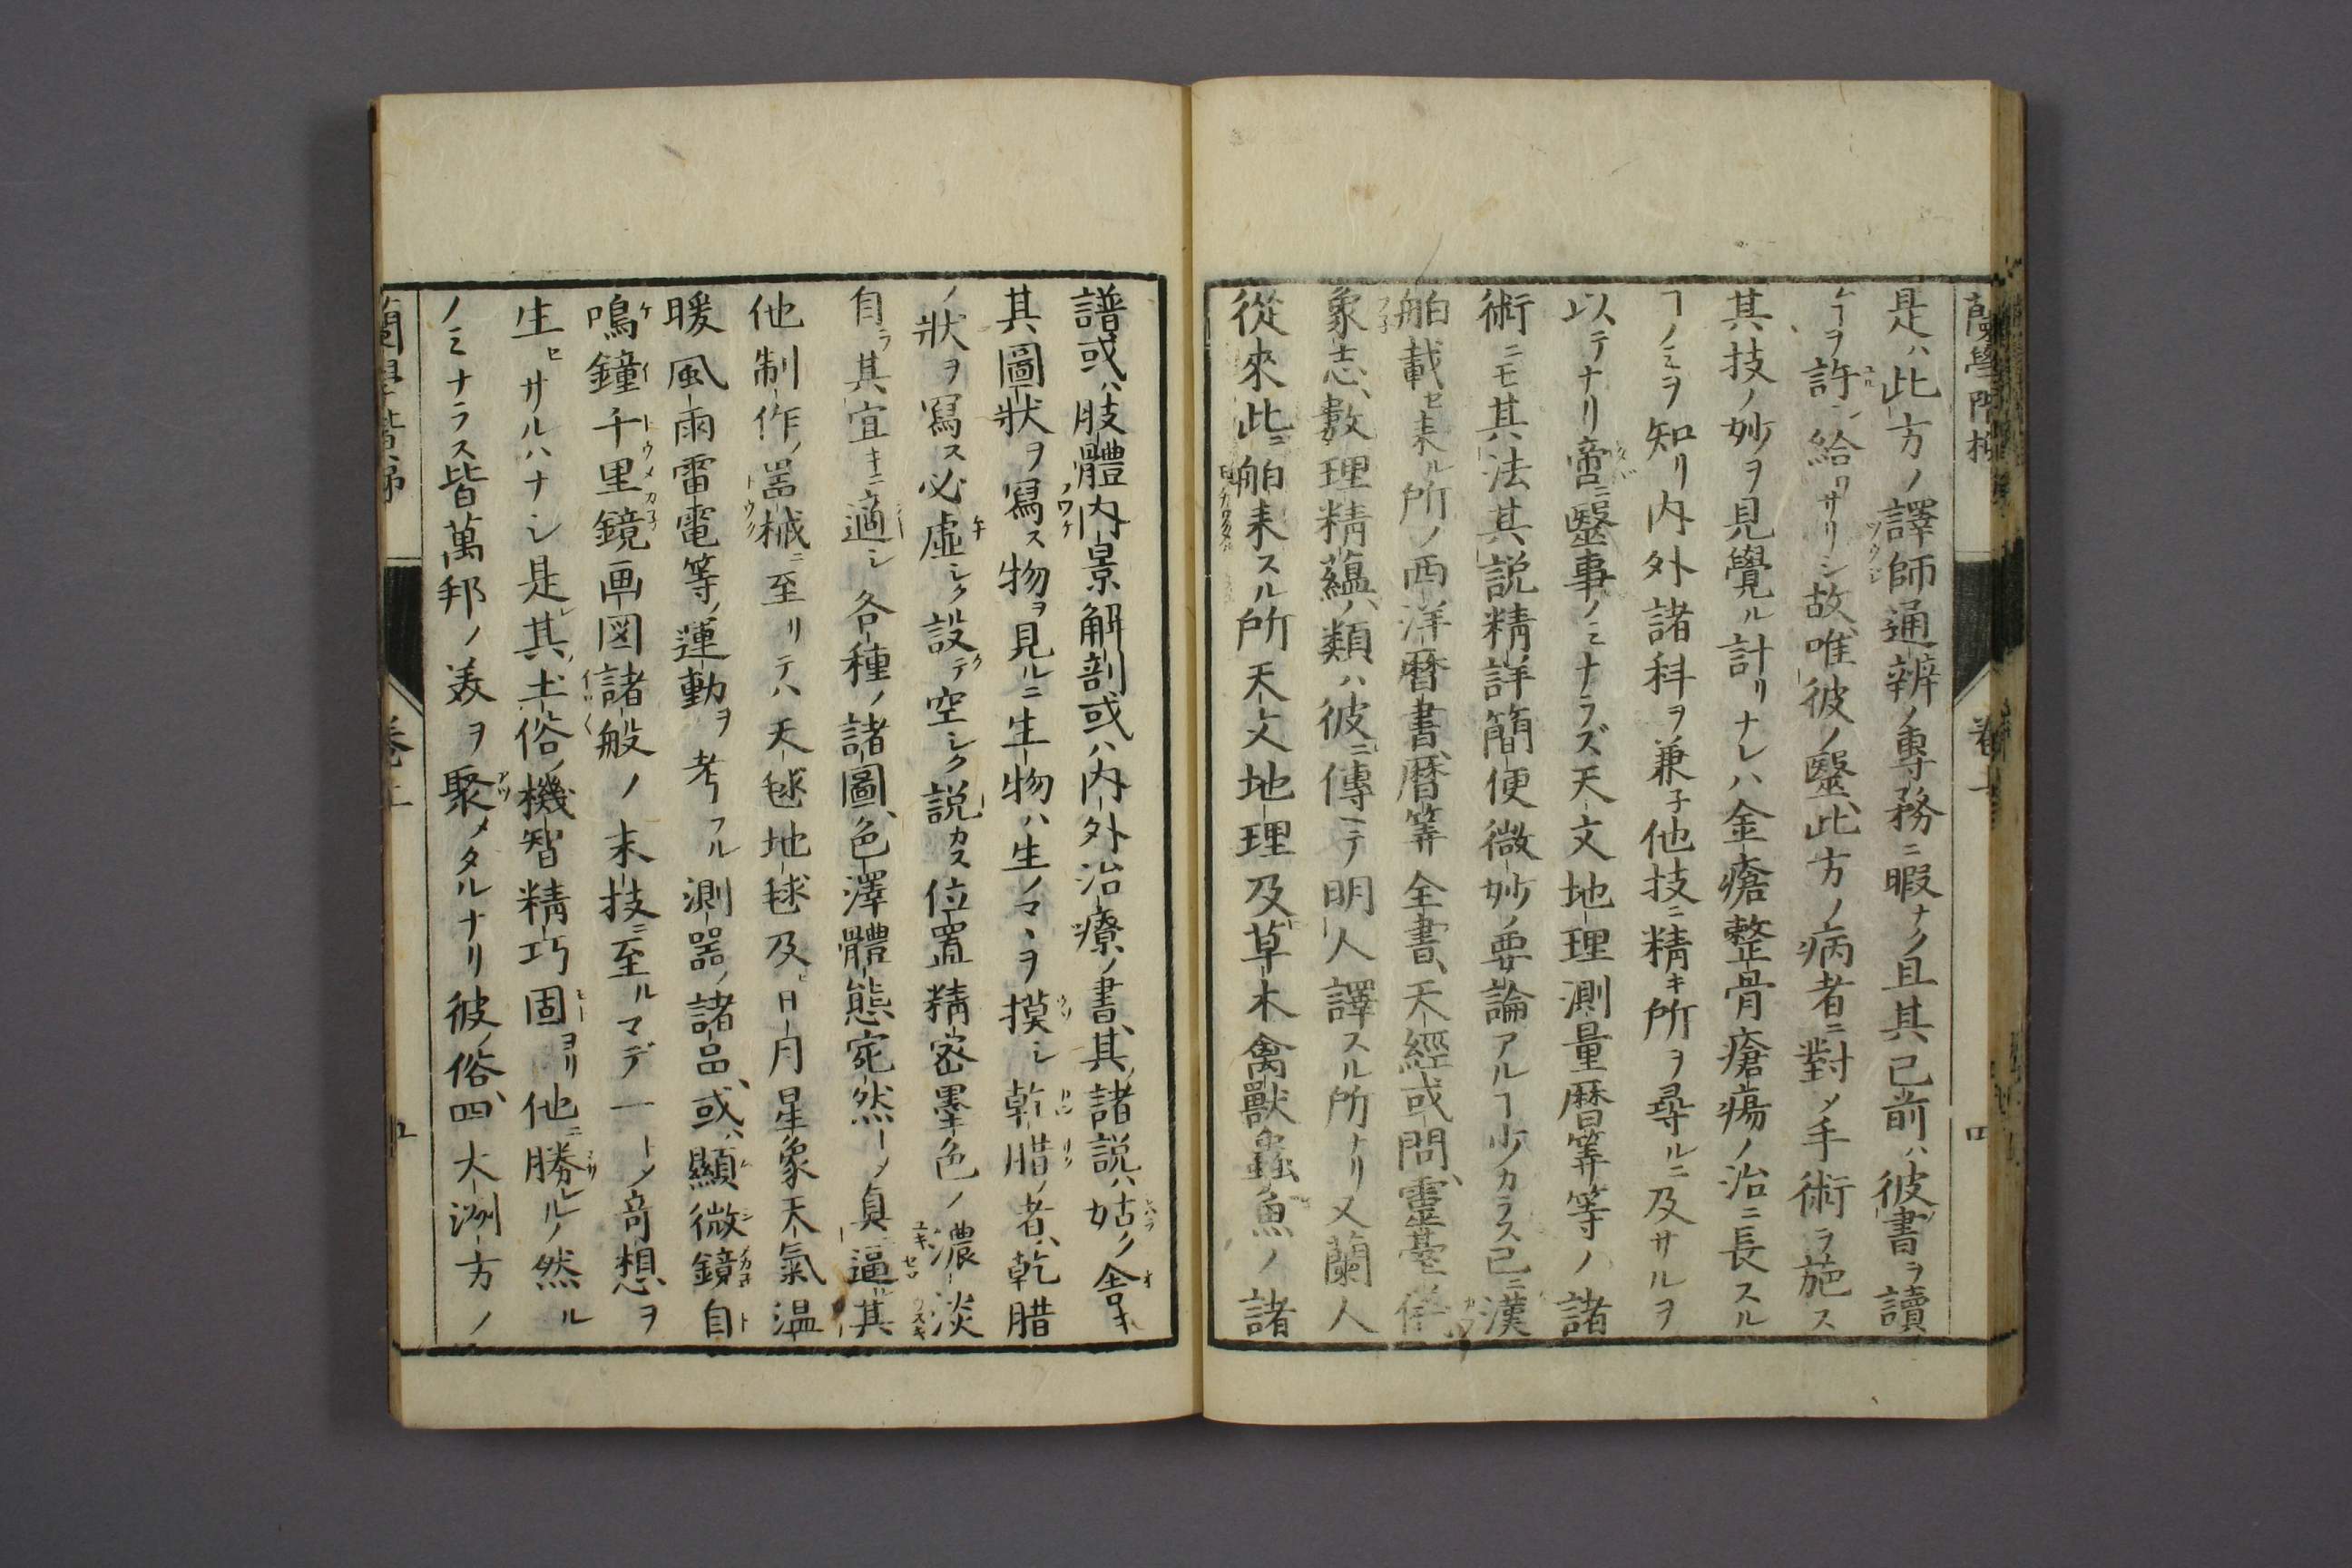 是ハ此方ノ譯師通辨ノ專務ニ暇ナク且其已前ハ彼書ヲ讀
ヿヲ許シ給ワサリシ故唯彼ノ醫此方ノ病者ニ對メ手術ヲ施ス
其技ノ妙ヲ見覺ル計リナレハ金瘡整骨瘡瘍ノ治ニ長スル
ヿノミヲ知リ内外諸科ヲ兼子他技ニ精キ所ヲ尋ルニ及サルヲ
以テナリ啻ニ醫事ノミナラズ天文地理測量暦筭等ノ諸
術ニモ其法其説精詳簡便微妙ノ要論アルヿ少カラス已ニ漢
舶載セ来ル所ノ西洋暦書暦筭全書天經或問靈臺儀
象志數理精蘊ノ類ハ彼ニ傳ヘテ明人譯スル所ナリ又蘭人
從來此ニ舶来スル所天文地理及草木禽獸蟲魚ノ諸
譜或ハ肢體内景解剖或ハ内外治療ノ書其諸説ハ姑ク舎キ
其圖狀ヲ寫ス物ヲ見ルニ生物ハ生ノマヽヲ摸シ乾腊ノ者乾腊
ノ狀ヲ寫ス必虛シク設テ空シク説カス位置精密墨色ノ濃淡
自ラ其宜キニ適シ各種ノ諸圖色澤體態宛然メ眞ニ逼ル其
他制作ノ噐械ニ至リテハ天毬地毬及ヒ日月星象天氣温
暖風雨雷電等ノ運動ヲ考フル測噐ノ諸品或ハ顯微鏡自
鳴鐘千里鏡画図諸般ノ末技ニ至ルマデ一トメ竒想ヲ
生セサルハナシ是其土俗ノ機智精巧固ヨリ他ニ勝レルノ然ル
ノミナラス皆萬邦ノ美ヲ聚メタルナリ彼ノ俗四大洲方ノ